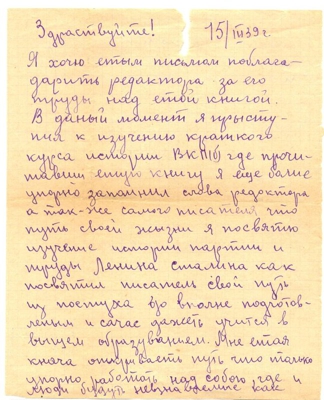 Здраствуйте! 15/III 39 г.
Я хочу етым письмом поблага-
дарить редактора за его
труды над етой книгой.
В даный момент я прысту-
пил к изучению краткого
курса истории ВКП(б) где прочи-
тавши етую книгу я еще более
упорно запомнил слова редоктора
а так-же самого писателя что
путь своей жизни я посвятию
изучение истории партии и
труды Ленина Сталина как
посвятил писатель свой путь
из постуха до вполне подготов-
леным и сачас дажеть учится в
высшем образуванем. Мне етая
книга открываеть путь что только
упорно работать над собою где и
люди будуть неузнаваемие как